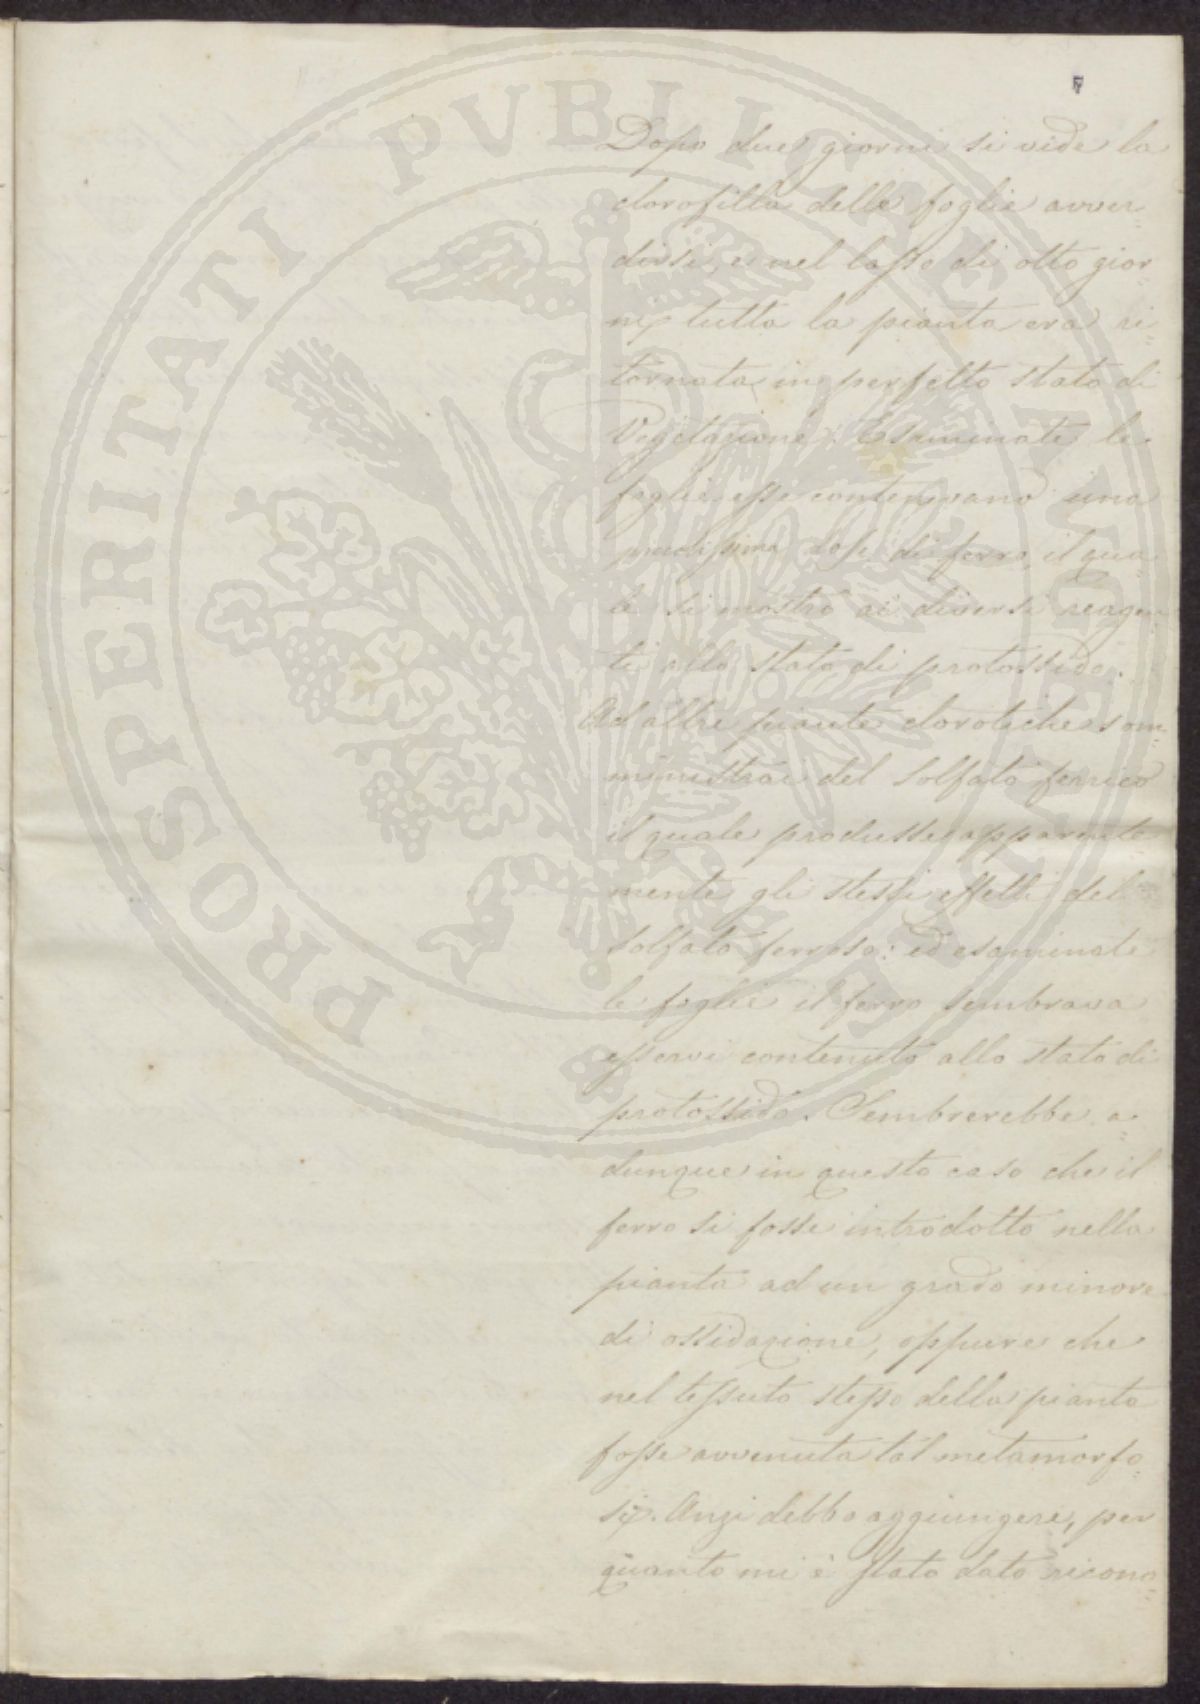 7
Dopo due giorni si vide la
clorofilla delle foglie avver-
dirsi, e nel lasso di otto gior-
ni tutta la pianta era ri-
tornata in perfetto stato di
Vegetazione. Esaminate le
foglie esse contenevano una
dose di ferro, il qua-
le si mostrò ai diversi reagen-
ti allo stato di protossido.
Ad altre piante clorotiche som-
ministrai del solfato ferrico
il quale produsse apparente-
mente gli stessi effetti del
solfato ferroso: ed esaminate
le foglie il ferro sembrava
esservi contenuto allo stato di
protossido. Sembrerebbe a-
dunque in questo caso che il
ferro si fosse introdotto nella
pianta ad un grado minore
di ossidazione, oppure che
nel tessuto stesso della pianta
fosse avvenuta tal metamorfo-
si. Anzi debbo aggiungere, per
quanto mi è stato dato ricono-
PROSPERITATI PVBLICAE